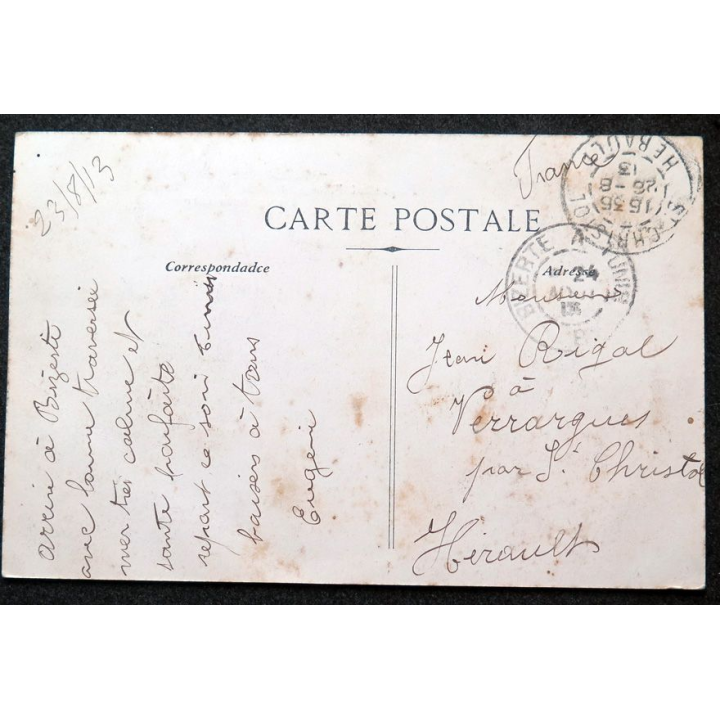 CARTE POSTALE
Correspondadce
Adresse
23/8/13
arrivé à Bizerte
avec bonne traversée
mer très calme et
sante parfaite
repart ce soir Tunis
baisers à tous
Eugène
France
Monsieur
Jean Rigal
à
Verrargues
par St Christol
Hérault
ST CHRISTOL
HERAULT
15 35
26 - 8
13
BIZERTE TUNISIE
24
13